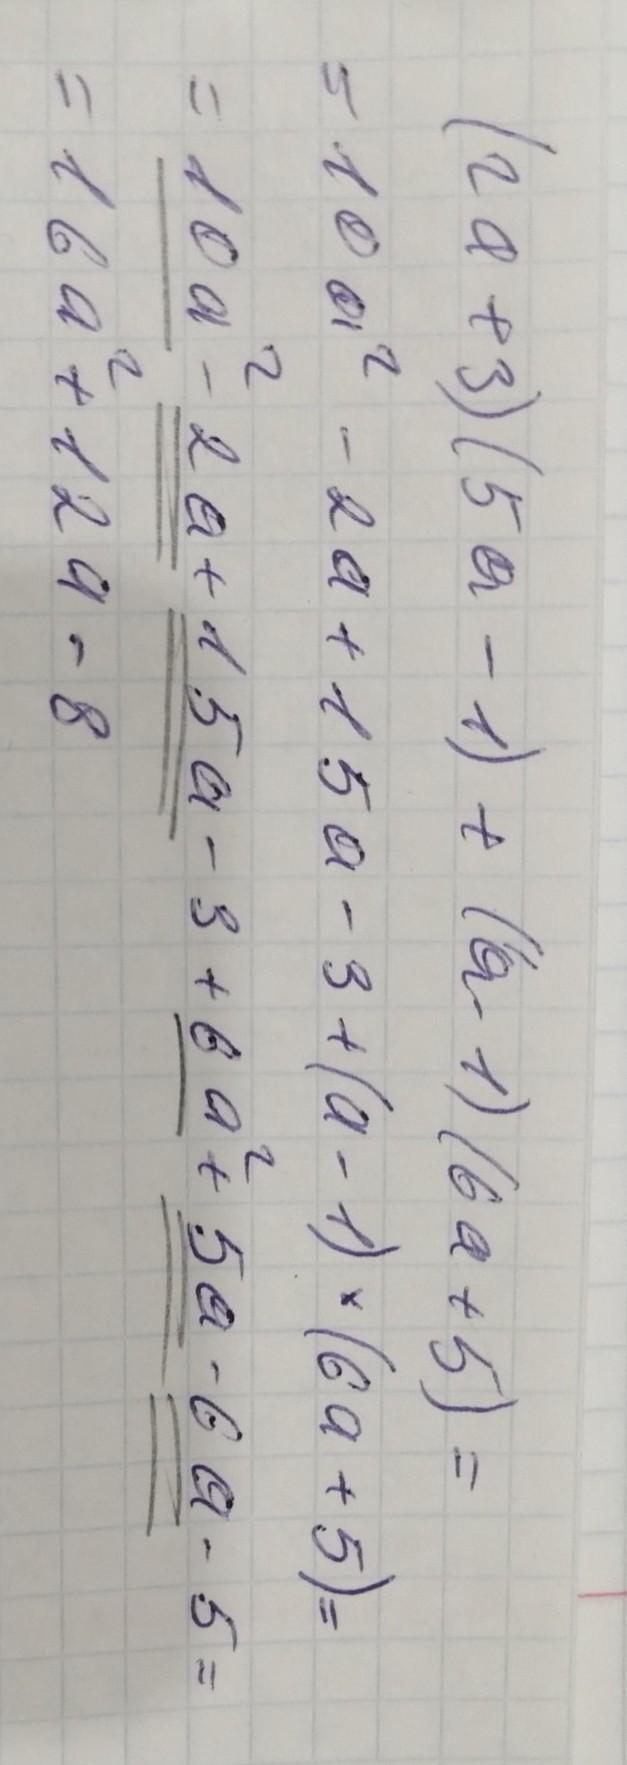 (2a+3)(5a-1)+(a-1)(6a+5)=
=10a²-2a+15a-3+(a-1)×(6a+5)=
=10a²-2a+15a-3+6a²+5a-6a-5=
=16a²+12a-8